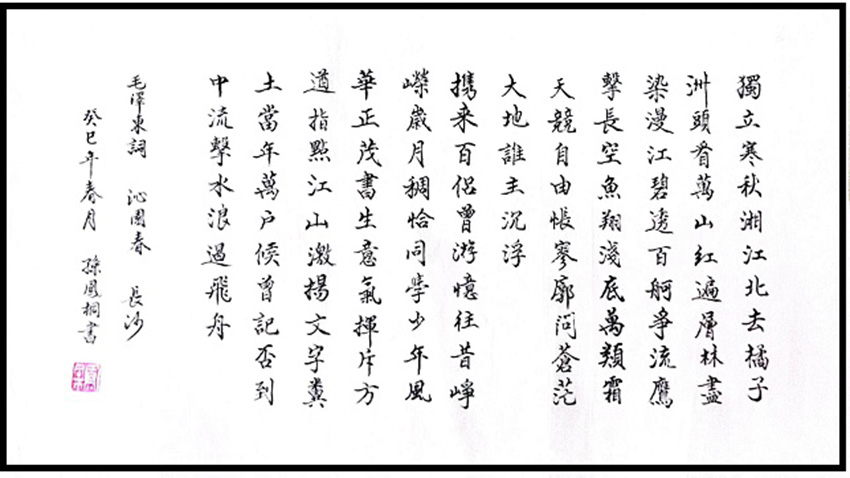 獨立寒秋湘江北去橘子
洲頭看萬山红遍層林盡
染漫江碧透百舸爭流鷹
擊長空魚翔淺底萬類霜
天競自由悵寥廓问蒼茫
大地誰主沉浮
携来百侣曾游憶往昔崢
嶸歲月稠恰同學少年風
華正茂書生意氣揮斥方
遒指點江山激揚文字糞
土當年萬户候曾記否到
中流擊水浪遏飛舟
毛澤東詞 沁園春 長沙
癸巳年春月 孫鳳桐書